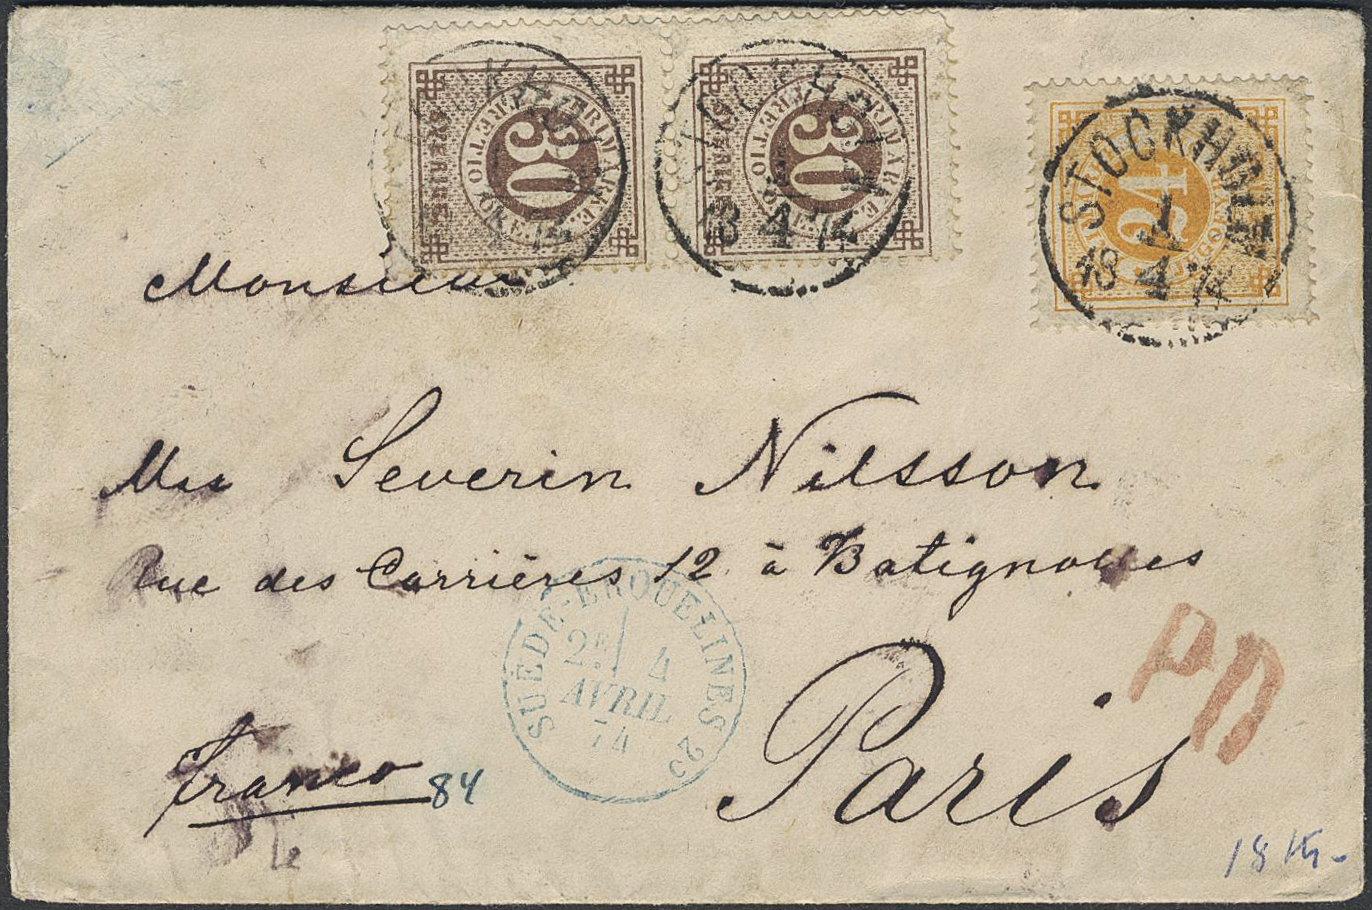 SVERIGE FRIMÄRKE TRETTIO ÖRE 30
SVERIGE FRIMÄRKE TRETTIO ÖRE 30
24
STOCKHOLM
18 4 74
STOCKHOLM
1
18 4 74
Monsieur
Mr Severin Nilsson
Rue des Carrières 12 à Batignolles
Paris
SUÈDE-ERQUELINES
2E 4
AVRIL
74
PD
Franco 84